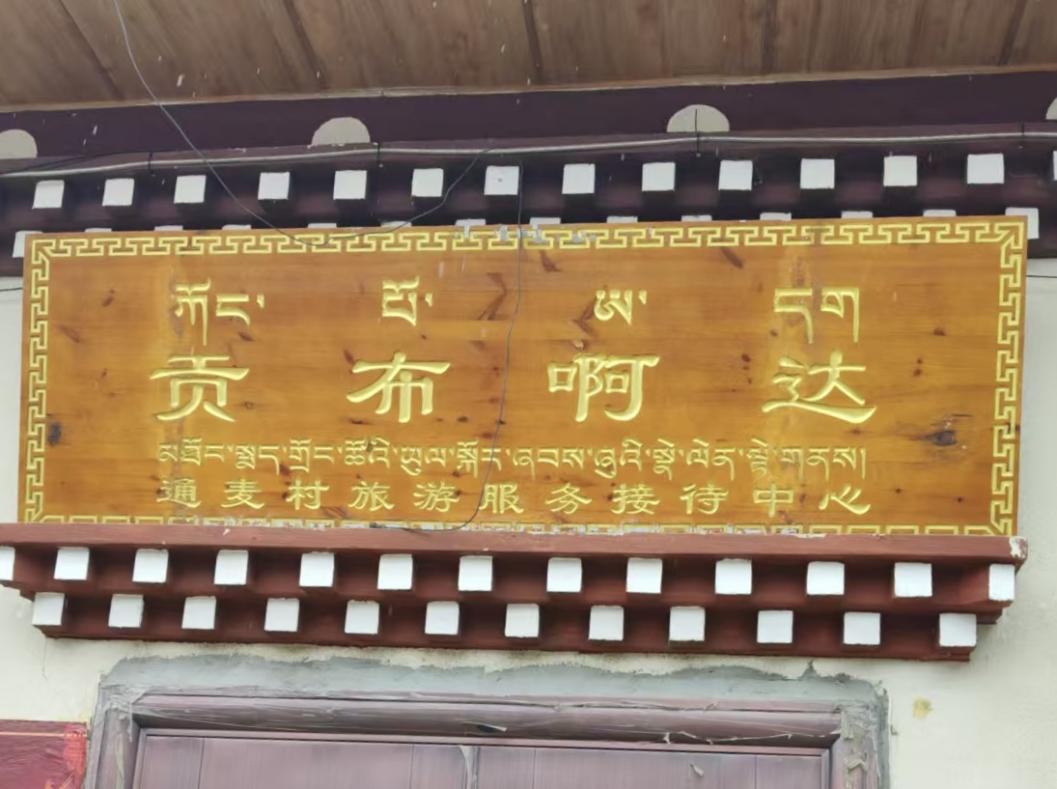 ཀོང་ པོ་ ཨ་ དག
贡布啊达
མཐོང་སྨད་གྲོང་ཚོའི་ཡུལ་སྐོར་ཞབས་ཞུའི་སྣེ་ལེན་ལྟེ་གནས།
通麦村旅游服务接待中心